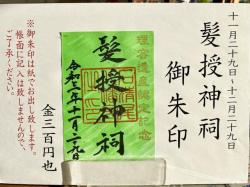 十一月二十九日〜十二月二十九
髪授神祠
御朱印
理容遺産認定記念
髪授神祠
令和二年十一月二十九日
金三百円也
※御朱印は紙でお出し致します。
帳面に記入は致しませんので、
ご了承ください。